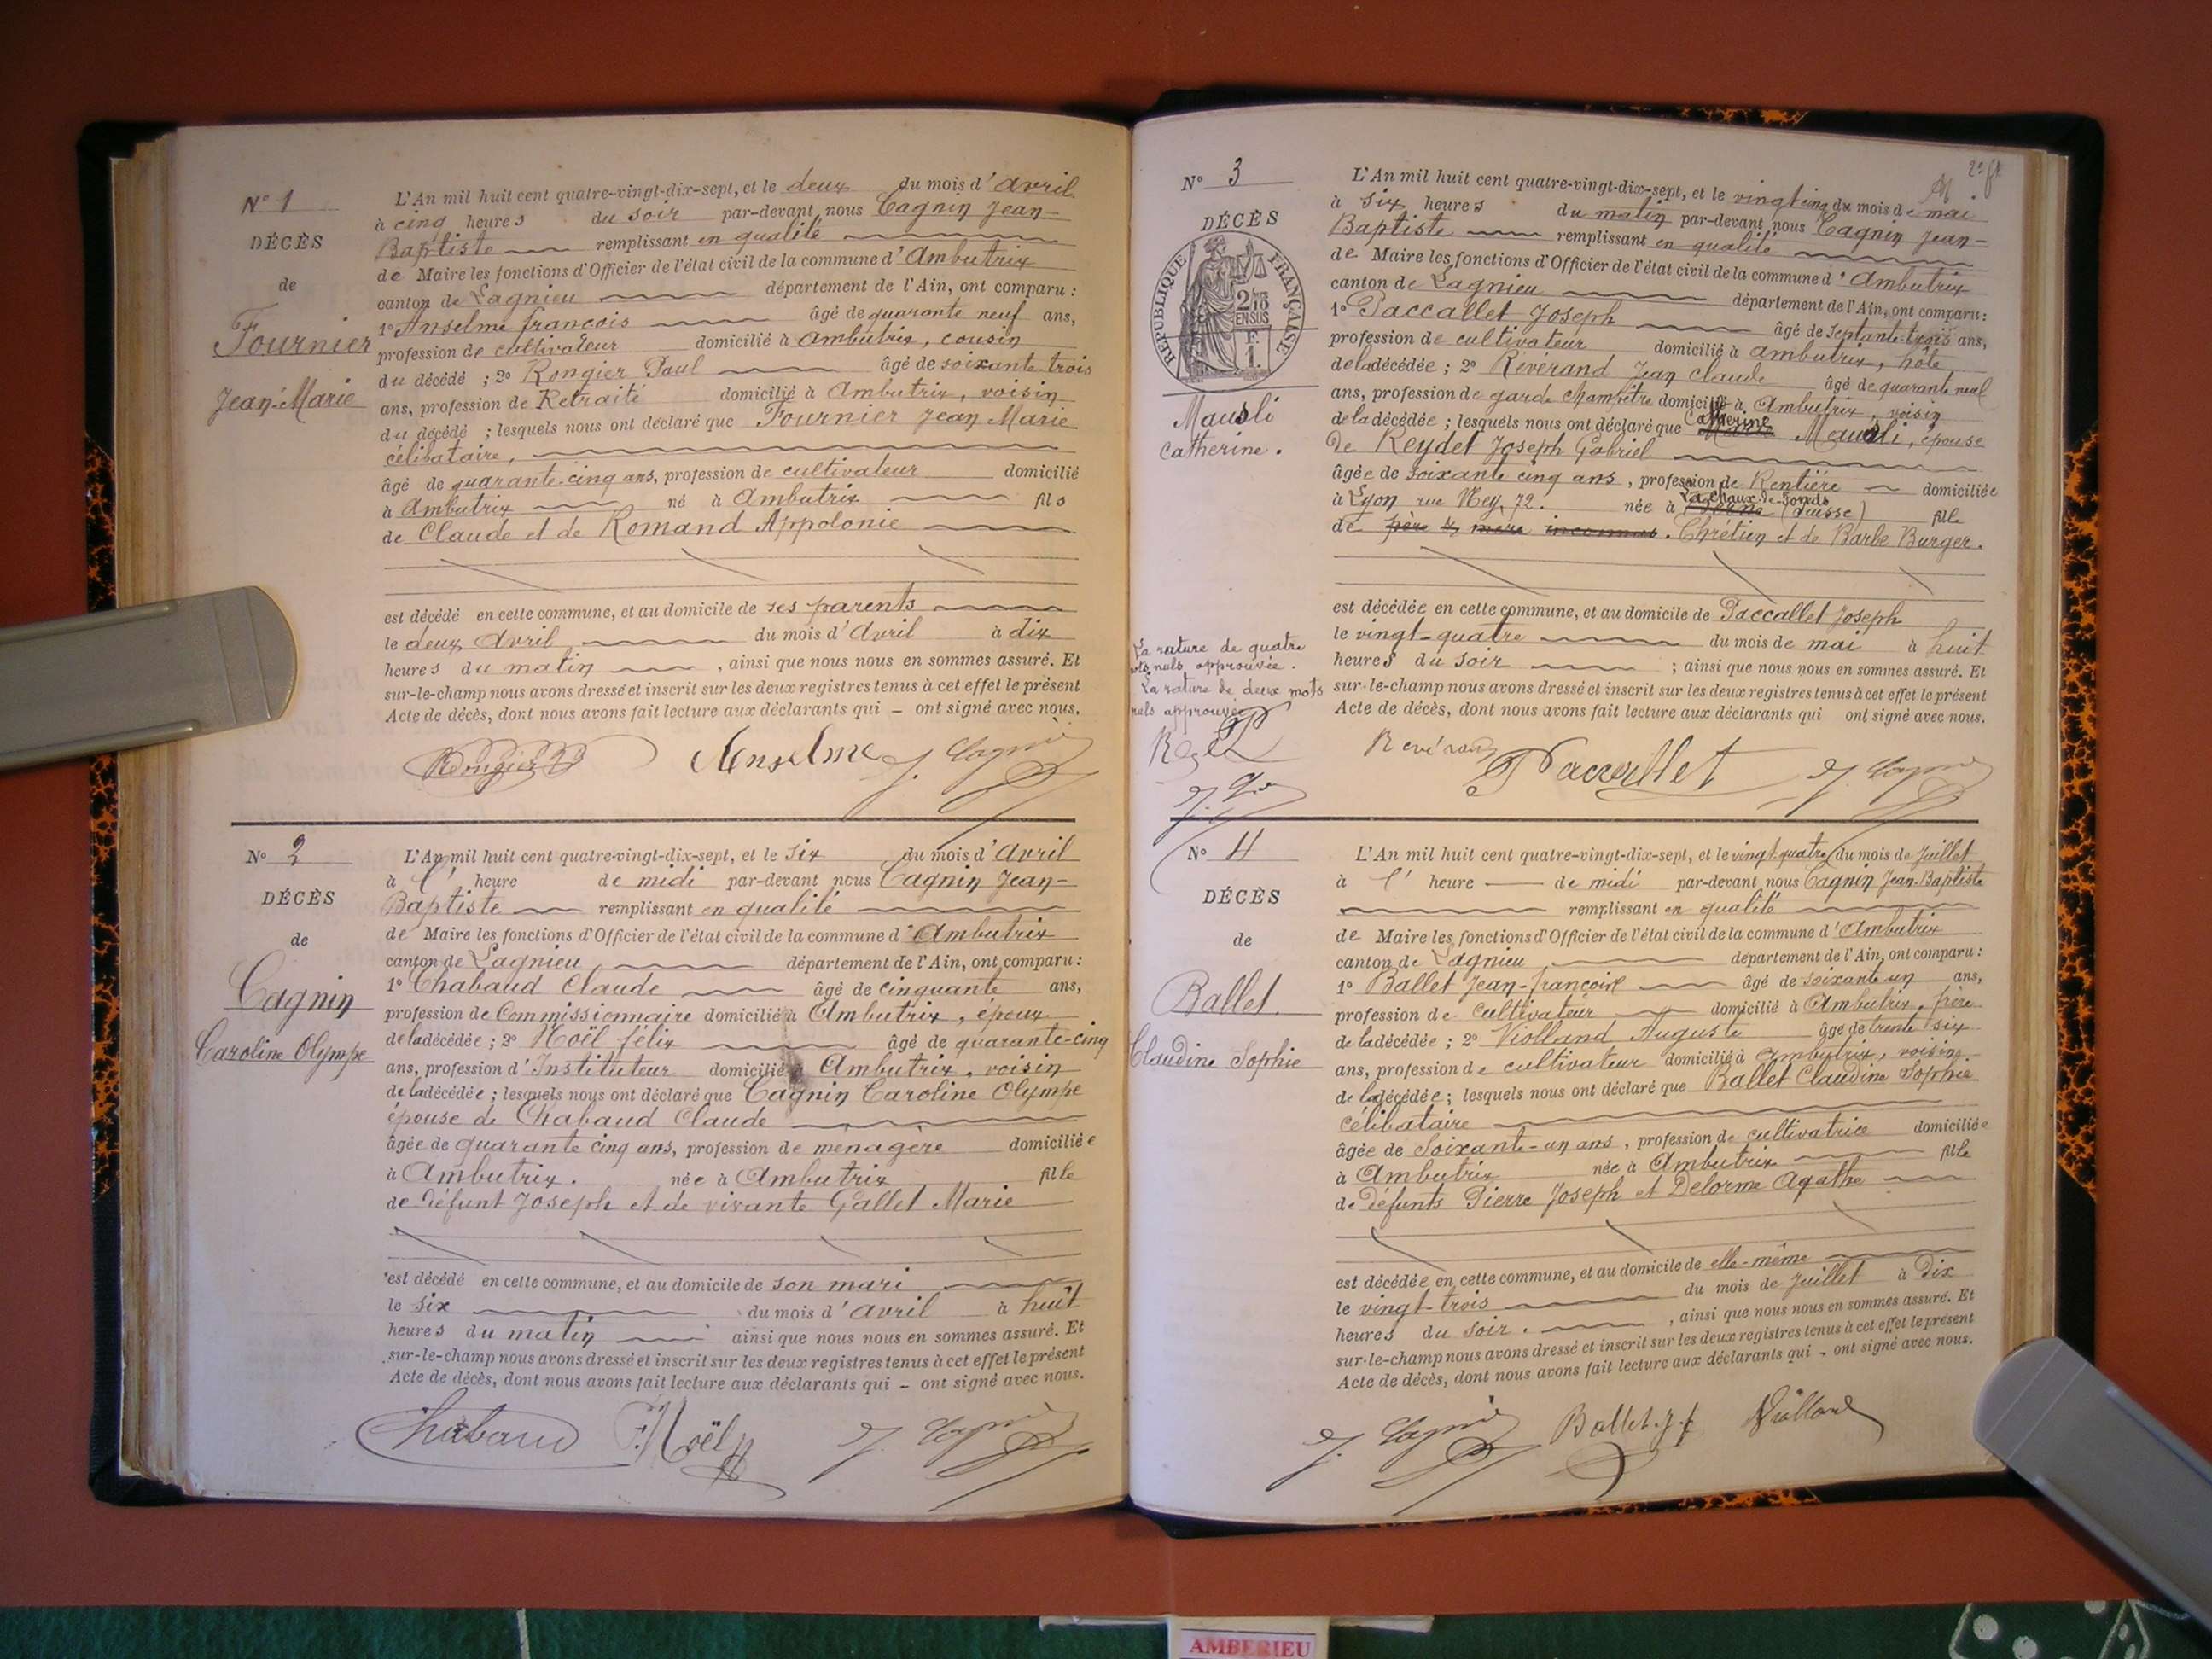 N° 1
DÉCÈS
de
Fournier
Jean-Marie
L'An mil huit cent quatre-vingt-dix-sept, et le deux du mois d'Avril
à cinq heures du soir par-devant nous Cagnin Jean-
Baptiste remplissant en qualité
de Maire les fonctions d'Officier de l'état civil de la commune d'Ambutrix
canton de Lagnieu département de l'Ain, ont comparu :
1° Anselme françois âgé de quarante neuf ans,
profession de cultivateur domicilié à Ambutrix, cousin
du décédé ; 2° Rongier Paul âgé de soixante-trois
ans, profession de Retraité domicilié à Ambutrix, voisin
du décédé ; lesquels nous ont déclaré que Fournier Jean Marie
célibataire,
âgé de quarante-cinq ans, profession de cultivateur domicilié
à Ambutrix né à Ambutrix fils
de Claude et de Romand Appolonie
est décédé en cette commune, et au domicile de ses parents
le deux Avril du mois d'Avril à dix
heures du matin , ainsi que nous nous en sommes assuré. Et
sur-le-champ nous avons dressé et inscrit sur les deux registres tenus à cet effet le présent
Acte de décès, dont nous avons fait lecture aux déclarants qui – ont signé avec nous.
Rongier Anselme J. Cagnin
N° 2
DÉCÈS
de
Cagnin
Caroline Olympe
L'An mil huit cent quatre-vingt-dix-sept, et le six du mois d'Avril
à l' heure de midi par-devant nous Cagnin Jean-
Baptiste remplissant en qualité
de Maire les fonctions d'Officier de l'état civil de la commune d'Ambutrix
canton de Lagnieu département de l'Ain, ont comparu :
1° Chabaud Claude âgé de cinquante ans,
profession de Commissionnaire domicilié à Ambutrix, époux
de la décédée ; 2° Noël félix âgé de quarante-cinq
ans, profession d'Instituteur domicilié à Ambutrix, voisin
de la décédée ; lesquels nous ont déclaré que Cagnin Caroline Olympe
épouse de Chabaud Claude
âgée de quarante cinq ans, profession de menagère domiciliée
à Ambutrix. née à Ambutrix fille
de défunt Joseph et de vivante Gallet Marie
est décédé en cette commune, et au domicile de son mari
le six du mois d'avril à huit
heures du matin ainsi que nous nous en sommes assuré. Et
sur-le-champ nous avons dressé et inscrit sur les deux registres tenus à cet effet le présent
Acte de décès, dont nous avons fait lecture aux déclarants qui – ont signé avec nous.
Chabaud F. Noël J. Cagnin
N° 3
DÉCÈS
REPUBLIQUE FRANÇAISE
2/10
EN SUS
F.
1.
Mausli
Catherine.
La rature de quatre
mots nuls approuvée.
La rature de deux mots
nuls approuvée
L'An mil huit cent quatre-vingt-dix-sept, et le vingt cinq du mois de mai
à six heures du matin par-devant nous Cagnin Jean-
Baptiste remplissant en qualité
de Maire les fonctions d'Officier de l'état civil de la commune d'Ambutrix
canton de Lagnieu département de l'Ain, ont comparu :
1° Paccallet Joseph âgé de septante-trois ans,
profession de cultivateur domicilié à ambutrix, hôte
de la décédée ; 2° Revérand Jean Claude âgé de quarante neuf
ans, profession de garde champêtre domicilié à Ambutrix, voisin
de la décédée ; lesquels nous ont déclaré que Catherine Mausli, épouse
de Reydet Joseph Gabriel
âgée de soixante cinq ans, profession de Rentière domiciliée
à Lyon rue Ney, 72. née à La Chaux-de-fonds (Suisse) fille
de père & mère inconnus. Chrétien et de Barbe Burger.
est décédée en cette commune, et au domicile de Paccallet Joseph
le vingt-quatre du mois de mai à huit
heures du soir ; ainsi que nous nous en sommes assuré. Et
sur-le-champ nous avons dressé et inscrit sur les deux registres tenus à cet effet le présent
Acte de décès, dont nous avons fait lecture aux déclarants qui ont signé avec nous.
Revérand Paccallet J. Cagnin
N° 4
DÉCÈS
de
Ballet
Claudine Sophie
L'An mil huit cent quatre-vingt-dix-sept, et le vingt-quatre du mois de Juillet
à l' heure de midi par-devant nous Cagnin Jean-Baptiste
remplissant en qualité
de Maire les fonctions d'Officier de l'état civil de la commune d'Ambutrix
canton de Lagnieu département de l'Ain, ont comparu :
1° Ballet Jean-françois âgé de soixante un ans,
profession de cultivateur domicilié à Ambutrix, frère
de la décédée ; 2° Violland Auguste âgé de trente six
ans, profession de cultivateur domicilié à Ambutrix, voisin
de la décédée ; lesquels nous ont déclaré que Ballet Claudine Sophie
célibataire
âgée de Soixante-un ans, profession de cultivatrice domiciliée
à Ambutrix née à Ambutrix fille
de défunts Pierre Joseph et Delorme Agathe
est décédée en cette commune, et au domicile de elle-même
le vingt-trois du mois de Juillet à Dix
heures du soir. , ainsi que nous nous en sommes assuré. Et
sur-le-champ nous avons dressé et inscrit sur les deux registres tenus à cet effet le présent
Acte de décès, dont nous avons fait lecture aux déclarants qui – ont signé avec nous.
J. Cagnin Ballet J. f Violland
AMBERIEU